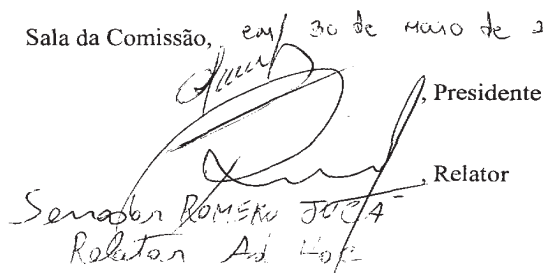 Sala da Comissão, em 30 de maio de 2
, Presidente
, Relator
Senador ROMERO JUCÁ
Relator Ad Hoc